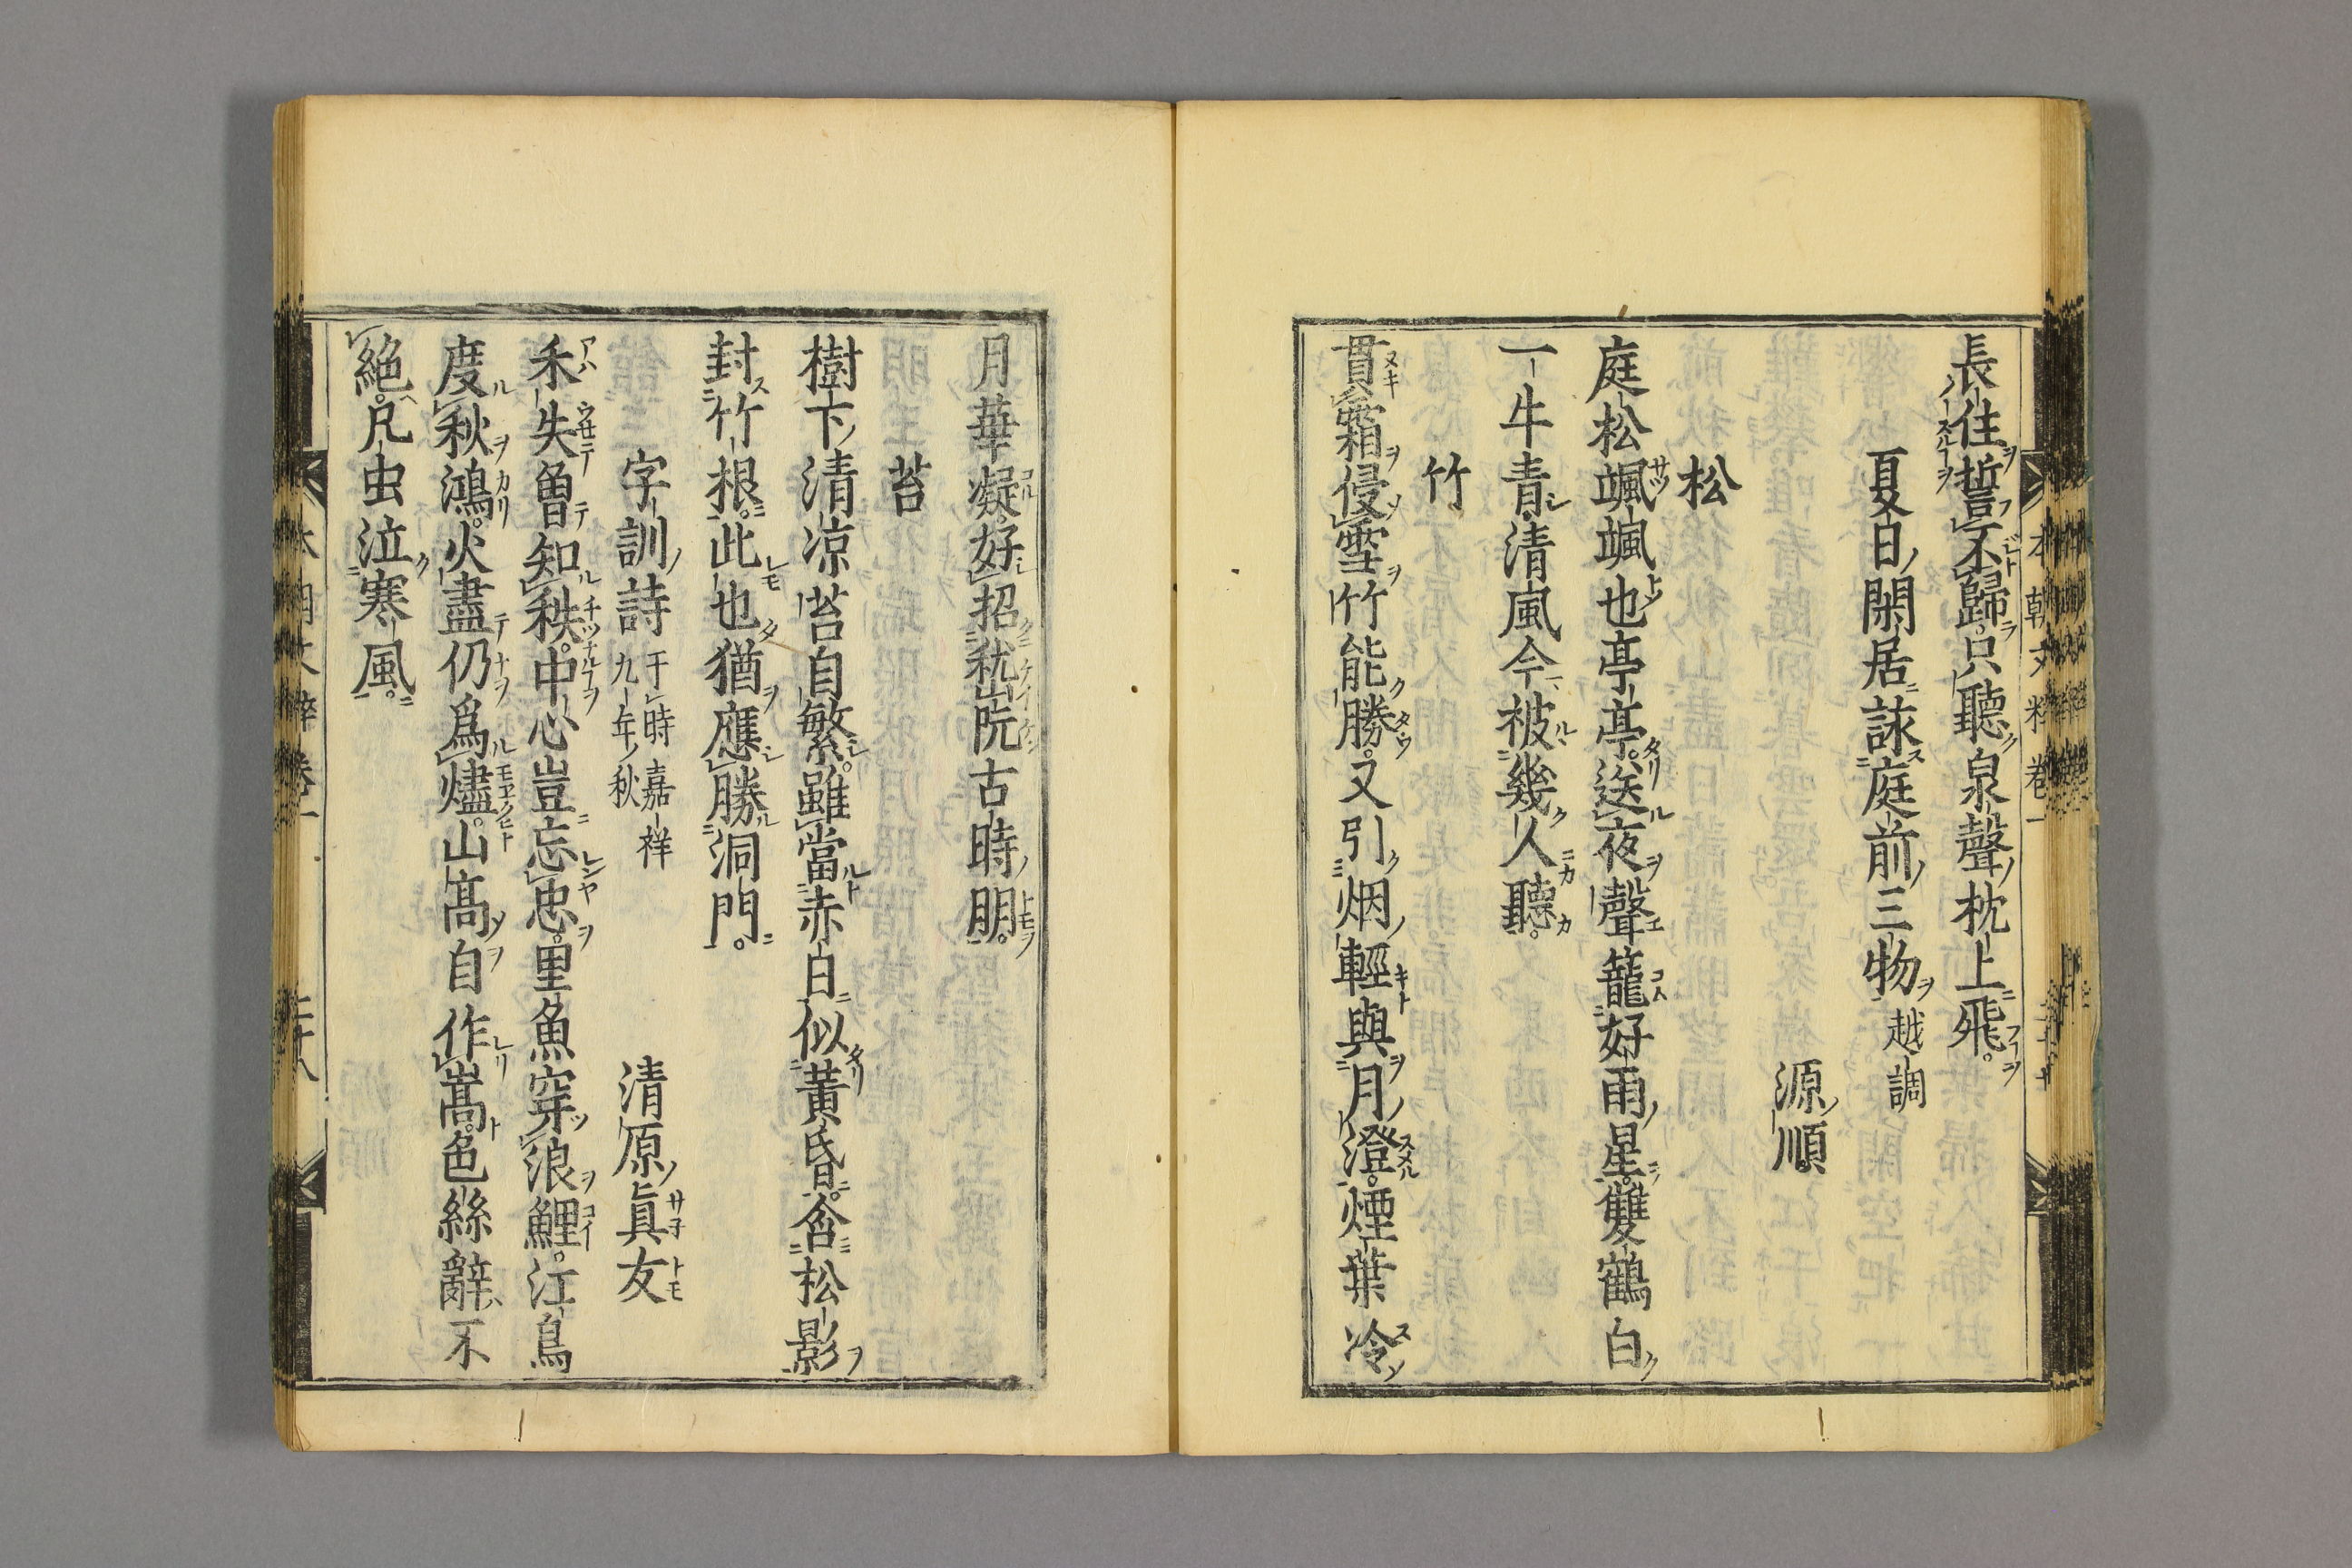 長住誓不歸只聽泉聲枕上飛
夏日閑居詠庭前三物越調
源順
松
庭松颯颯也亭亭送夜聲籠好雨星雙鶴白
一牛青清風今被幾人聽
竹
貫霜侵雪竹能勝又引烟輕與月澄煙葉冷
本朝文粹卷一
月華凝好招嵇阮古時朋
苔
樹下清凉苔自繁雖當赤白似黃昏含松影
封竹根此也猶應勝洞門
字訓詩于時嘉祥九年秋
清原眞友
禾失曾知秩中心豈忘忠里魚穿浪鯉江鳥
度秋鴻火盡仍爲燼山高自作嵩色絲辭不
絕凡虫泣寒風